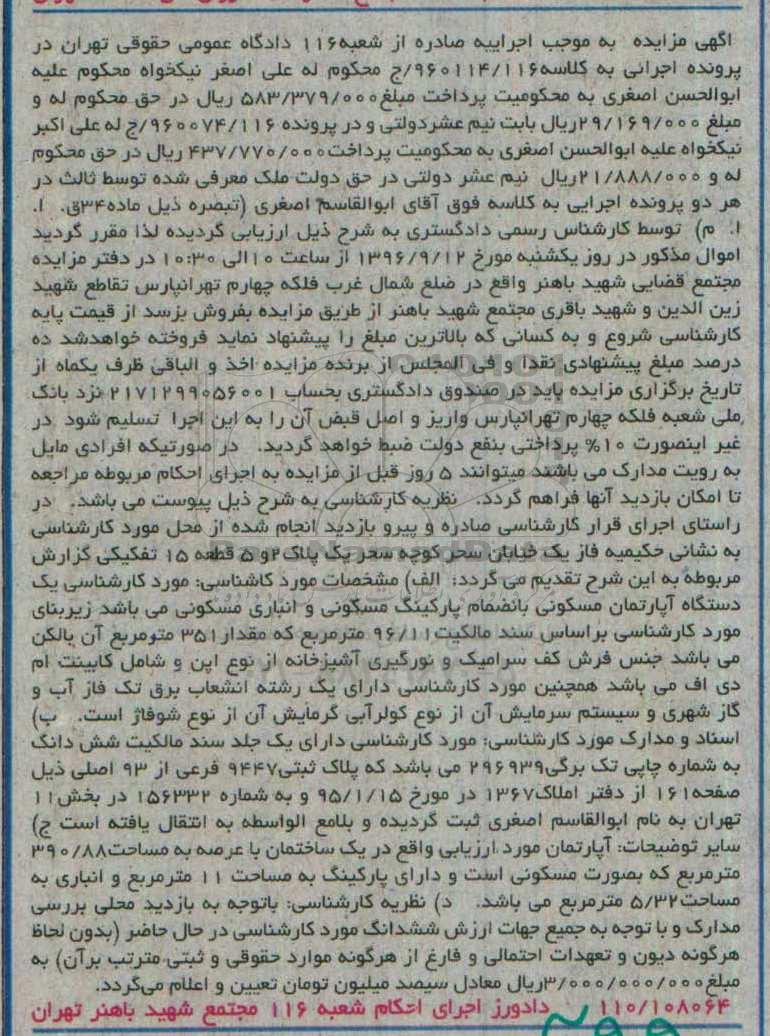 آگهی مزایده به موجب اجراییه صادره از شعبه۱۱۶ دادگاه عمومی حقوقی تهران در
پرونده اجرائی به کلاسه۹۶۰۱۱۴/۱۱۶/ج محکوم له علی اصغر نیکخواه محکوم علیه
ابوالحسن اصغری به محکومیت پرداخت مبلغ۵۸۳/۳۷۹/۰۰۰ ریال در حق محکوم له و
مبلغ ۲۹/۱۶۹/۰۰۰ریال بابت نیم عشردولتی و در پرونده ۹۶۰۰۷۴/۱۱۶/ج له علی اکبر
نیکخواه علیه ابوالحسن اصغری به محکومیت پرداخت۴۳۷/۷۷۰/۰۰۰ ریال در حق محکوم
له و ۲۱/۸۸۸/۰۰۰ریال نیم عشر دولتی در حق دولت ملک معرفی شده توسط ثالث در
هر دو پرونده اجرایی به کلاسه فوق آقای ابوالقاسم اصغری (تبصره ذیل ماده۳۴ق. ا.
ا. م) توسط کارشناس رسمی دادگستری به شرح ذیل ارزیابی گردیده لذا مقرر گردید
اموال مذکور در روز یکشنبه مورخ ۱۳۹۶/۹/۱۲ از ساعت ۱۰الی ۱۰:۳۰ در دفتر مزایده
مجتمع قضایی شهید باهنر واقع در ضلع شمال غرب فلکه چهارم تهرانپارس تقاطع شهید
زین الدین و شهید باقری مجتمع شهید باهنر از طریق مزایده بفروش برسد از قیمت پایه
کارشناسی شروع و به کسانی که بالاترین مبلغ را پیشنهاد نماید فروخته خواهدشد ده
درصد مبلغ پیشنهادی نقدا و فی المجلس از برنده مزایده اخذ و الباقی ظرف یکماه از
تاریخ برگزاری مزایده باید در صندوق دادگستری بحساب ۲۱۷۱۲۹۹۰۵۶۰۰۱ نزد بانک
ملی شعبه فلکه چهارم تهرانپارس واریز و اصل قبض آن را به این اجرا تسلیم شود در
غیر اینصورت ۱۰% پرداختی بنفع دولت ضبط خواهد گردید. در صورتیکه افرادی مایل
به رویت مدارک می باشند میتوانند ۵ روز قبل از مزایده به اجرای احکام مربوطه مراجعه
تا امکان بازدید آنها فراهم گردد. نظریه کارشناسی به شرح ذیل پیوست می باشد. در
راستای اجرای قرار کارشناسی صادره و پیرو بازدید انجام شده از محل مورد کارشناسی
به نشانی حکیمیه فاز یک خیابان سحر کوچه سحر یک پلاک۲و ۵ قطعه ۱۵ تفکیکی گزارش
مربوطه به این شرح تقدیم می گردد: الف) مشخصات مورد کاشناسی: مورد کارشناسی یک
دستگاه آپارتمان مسکونی بانضمام پارکینگ مسکونی و انباری مسکونی می باشد زیربنای
مورد کارشناسی براساس سند مالکیت۹۶/۱۱ مترمربع که مقدار۳۵۱ مترمربع آن بالکن
می باشد جنس فرش کف سرامیک و نورگیری آشپزخانه از نوع اپن و شامل کابینت ام
دی اف می باشد همچنین مورد کارشناسی دارای یک رشته انشعاب برق تک فاز آب و
گاز شهری و سیستم سرمایش آن از نوع کولرآبی گرمایش آن از نوع شوفاژ است. ب)
اسناد و مدارک مورد کارشناسی: مورد کارشناسی دارای یک جلد سند مالکیت شش دانگ
به شماره چاپی تک برگی۲۹۶۹۳۹ می باشد که پلاک ثبتی۹۴۴۷ فرعی از ۹۳ اصلی ذیل
صفحه۱۶۱ از دفتر املاک۱۳۶۷ در مورخ ۹۵/۱/۱۵ و به شماره ۱۵۶۳۳۲ در بخش۱۱
تهران به نام ابوالقاسم اصغری ثبت گردیده و بلامع الواسطه به انتقال یافته است ج)
سایر توضیحات: آپارتمان مورد ارزیابی واقع در یک ساختمان با عرصه به مساحت۳۹۰/۸۸
مترمربع که بصورت مسکونی است و دارای پارکینگ به مساحت ۱۱ مترمربع و انباری به
مساحت۵/۳۲ مترمربع می باشد. د) نظریه کارشناسی: باتوجه به بازدید محلی بررسی
مدارک و با توجه به جمیع جهات ارزش ششدانگ مورد کارشناسی در حال حاضر (بدون لحاظ
هرگونه دیون و تعهدات احتمالی و فارغ از هرگونه موارد حقوقی و ثبتی مترتب برآن) به
مبلغ۳/۰۰۰/۰۰۰/۰۰۰ریال معادل سیصد میلیون تومان تعیین و اعلام می‌گردد.
۱۱۰/۱۰۸۰۶۴ دادورز اجرای احکام شعبه ۱۱۶ مجتمع شهید باهنر تهران